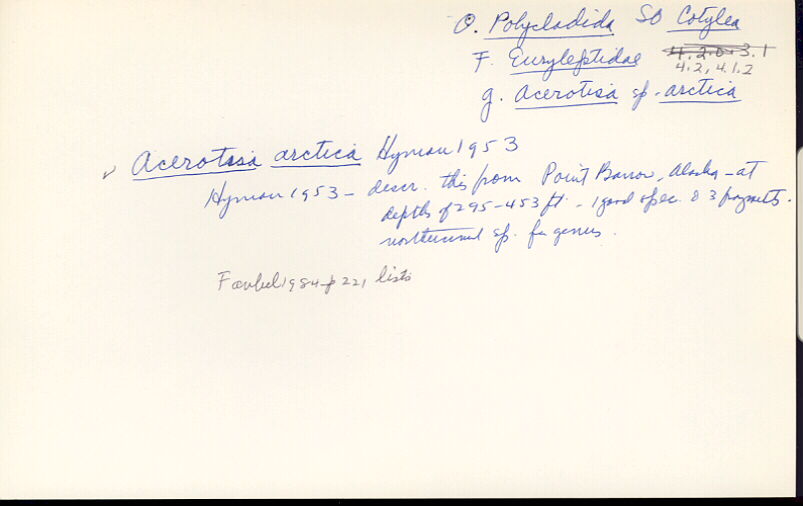 O. Polycladida SO Cotylea
F. Euryleptidae 4.2.0.3.1
4.2, 4.1.2
g. Acerotisa sp. arctica
✓ Acerotisa arctica Hyman 1953
Hyman 1953 – descr. this from Point Barrow, Alaska – at
depths of 295-453 ft. – 1 good spec. & 3 fragments.
northernmost sp. for genus.
Faubel 1984 p 221 lists